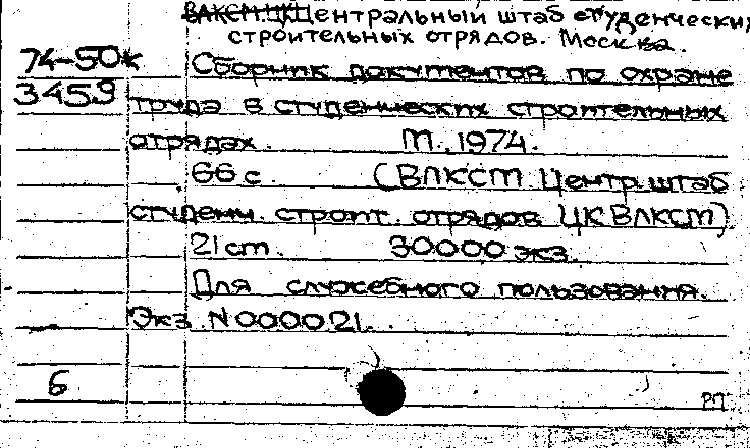 ВЛКСМ.ЦК.Центральный штаб студенческих
строительных отрядов. Москва.
74-50к Сборник документов по охране
3459 труда в студенческих строительных
отрядах. М., 1974.
66 с. (ВЛКСМ. Центр. штаб
студенч. строит. отрядов ЦК ВЛКСМ)
21 см. 30000 экз.
Для служебного пользования.
Экз. N000021.
6
РП